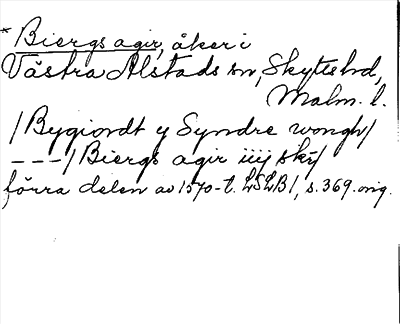 * Biergs agir, åker i
Västra Alstads sn, Skytts hd,
Malm. l.
/Bygiordt y Syndre wongh/
– – – / Biergs agir iiij skр/
förra delen av 1570-t. LSLB I, s. 369. orig.